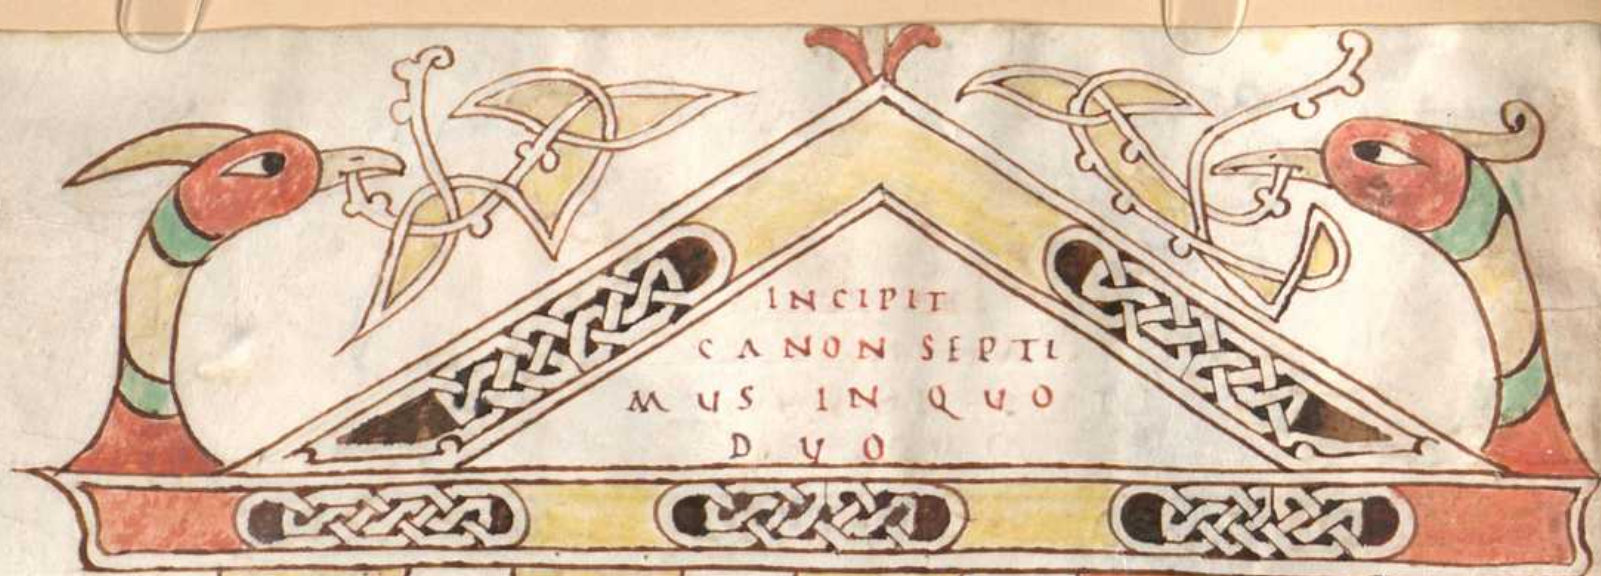 INCIPIT
CANON SEPTI
MUS IN QUO
DUO